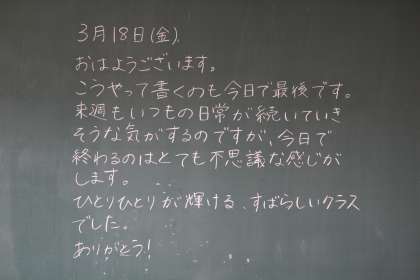 3月18日(金).
おはようございます。
こうやって書くのも今日で最後です。
来週もいつもの日常が続いていき
そうな気がするのですが、今日で
終わるのはとても不思議な感じが
します。
ひとりひとりが輝ける、すばらしいクラス
でした。
ありがとう!